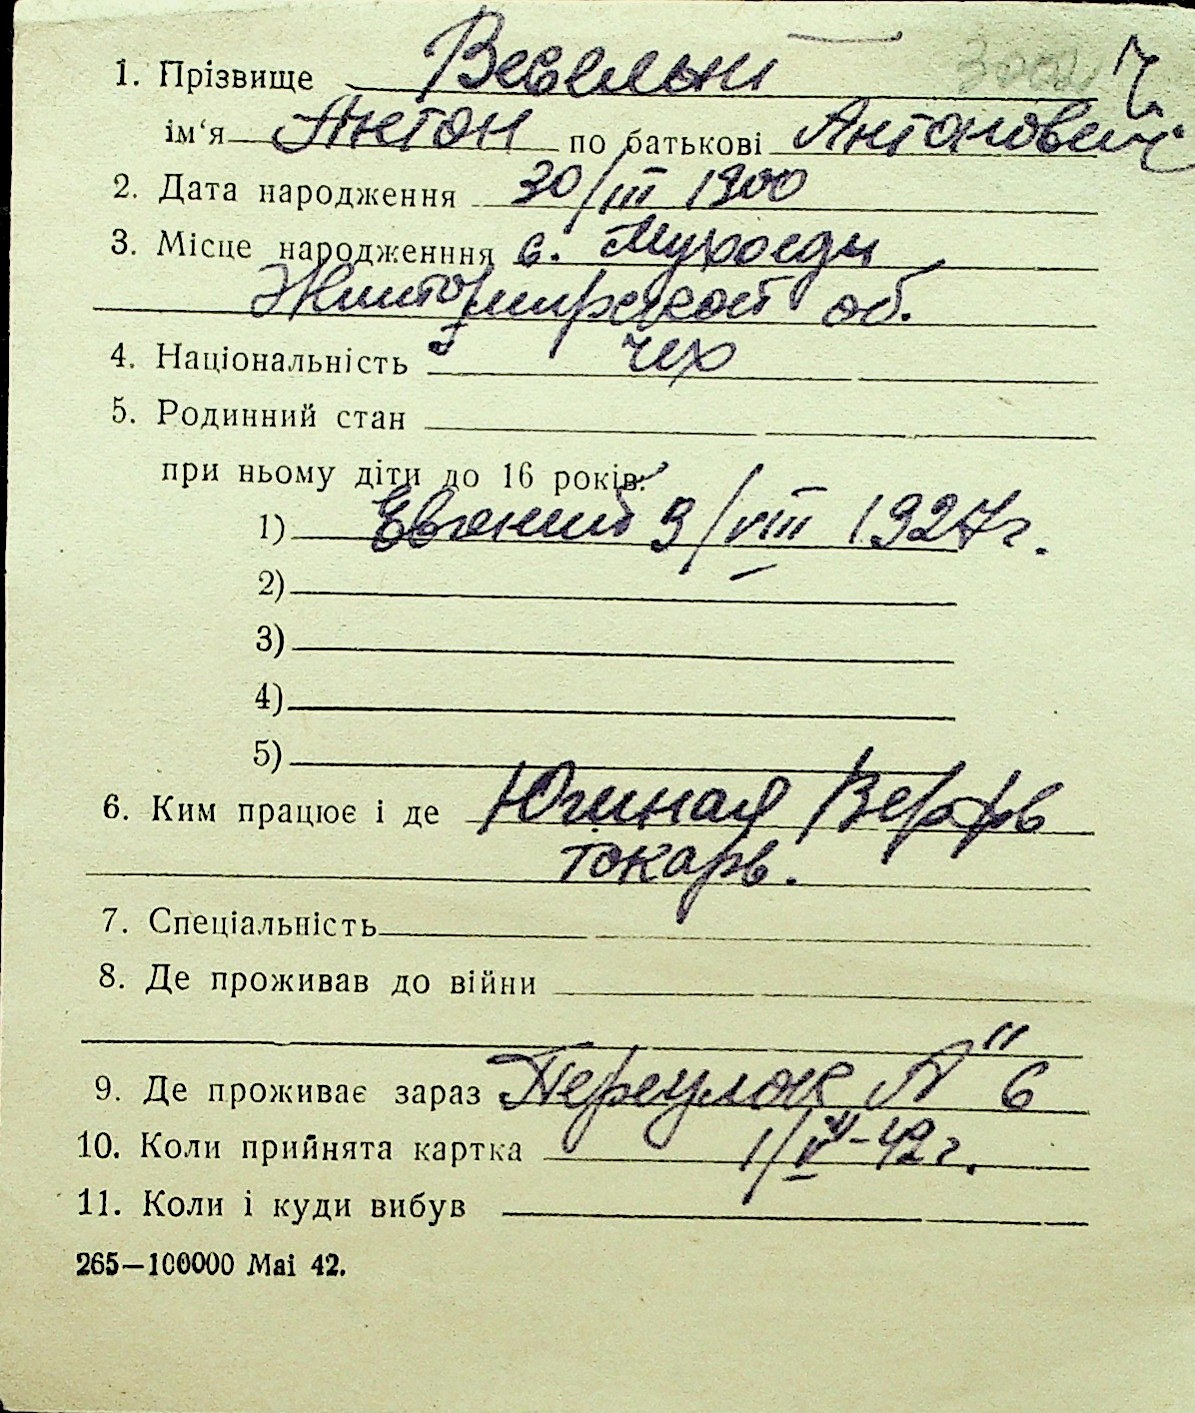 1. Прізвище Весельні
ім‘я Антон по батькові Антонович
2. Дата народження 30/III 1900
3. Місце народженння с. Мухоеды
Житомирской об.
4. Національність чех
5. Родинний стан
при ньому діти до 16 років:
1) Евгений 9/VIII 1927г.
2)
3)
4)
5)
6. Ким працює і де Южная Верфь
токарь.
7. Спеціальність
8. Де проживав до війни
9. Де проживає зараз Переулок "А" 6
10. Коли прийнята картка 42г.
11. Коли і куди вибув
265—100000 Mai 42.